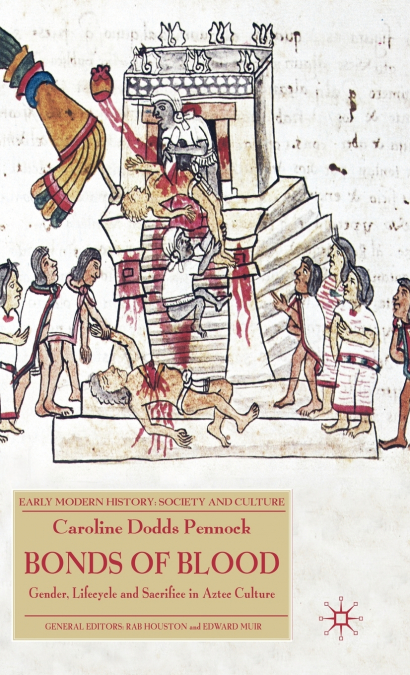 EARLY MODERN HISTORY: SOCIETY AND CULTURE
Caroline Dodds Pennock
BONDS OF BLOOD
Gender, Lifecycle and Sacrifice in Aztec Culture
GENERAL EDITORS: RAB HOUSTON and EDWARD MUIR